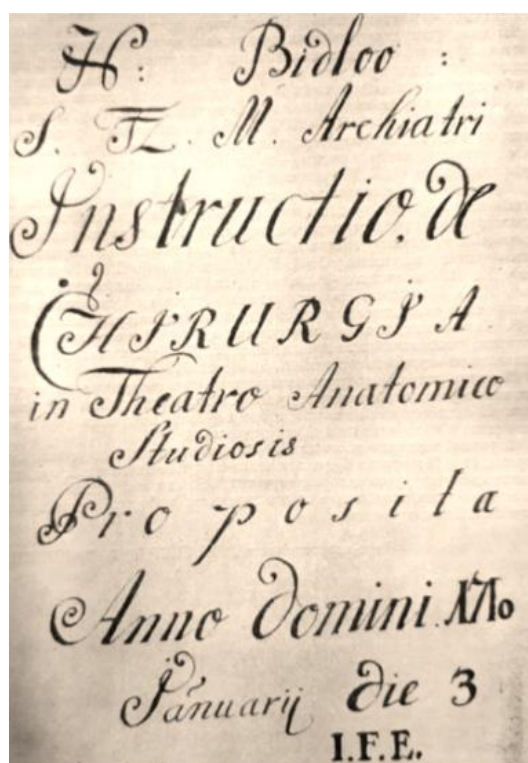 N: Bidloo :
S. TZ. M. Archiatri
Instructio. de
CHIRURGIA
in Theatro Anatomico
Studiosis
Proposita
Anno Domini 1710
Januarij die 3
I.F.E.